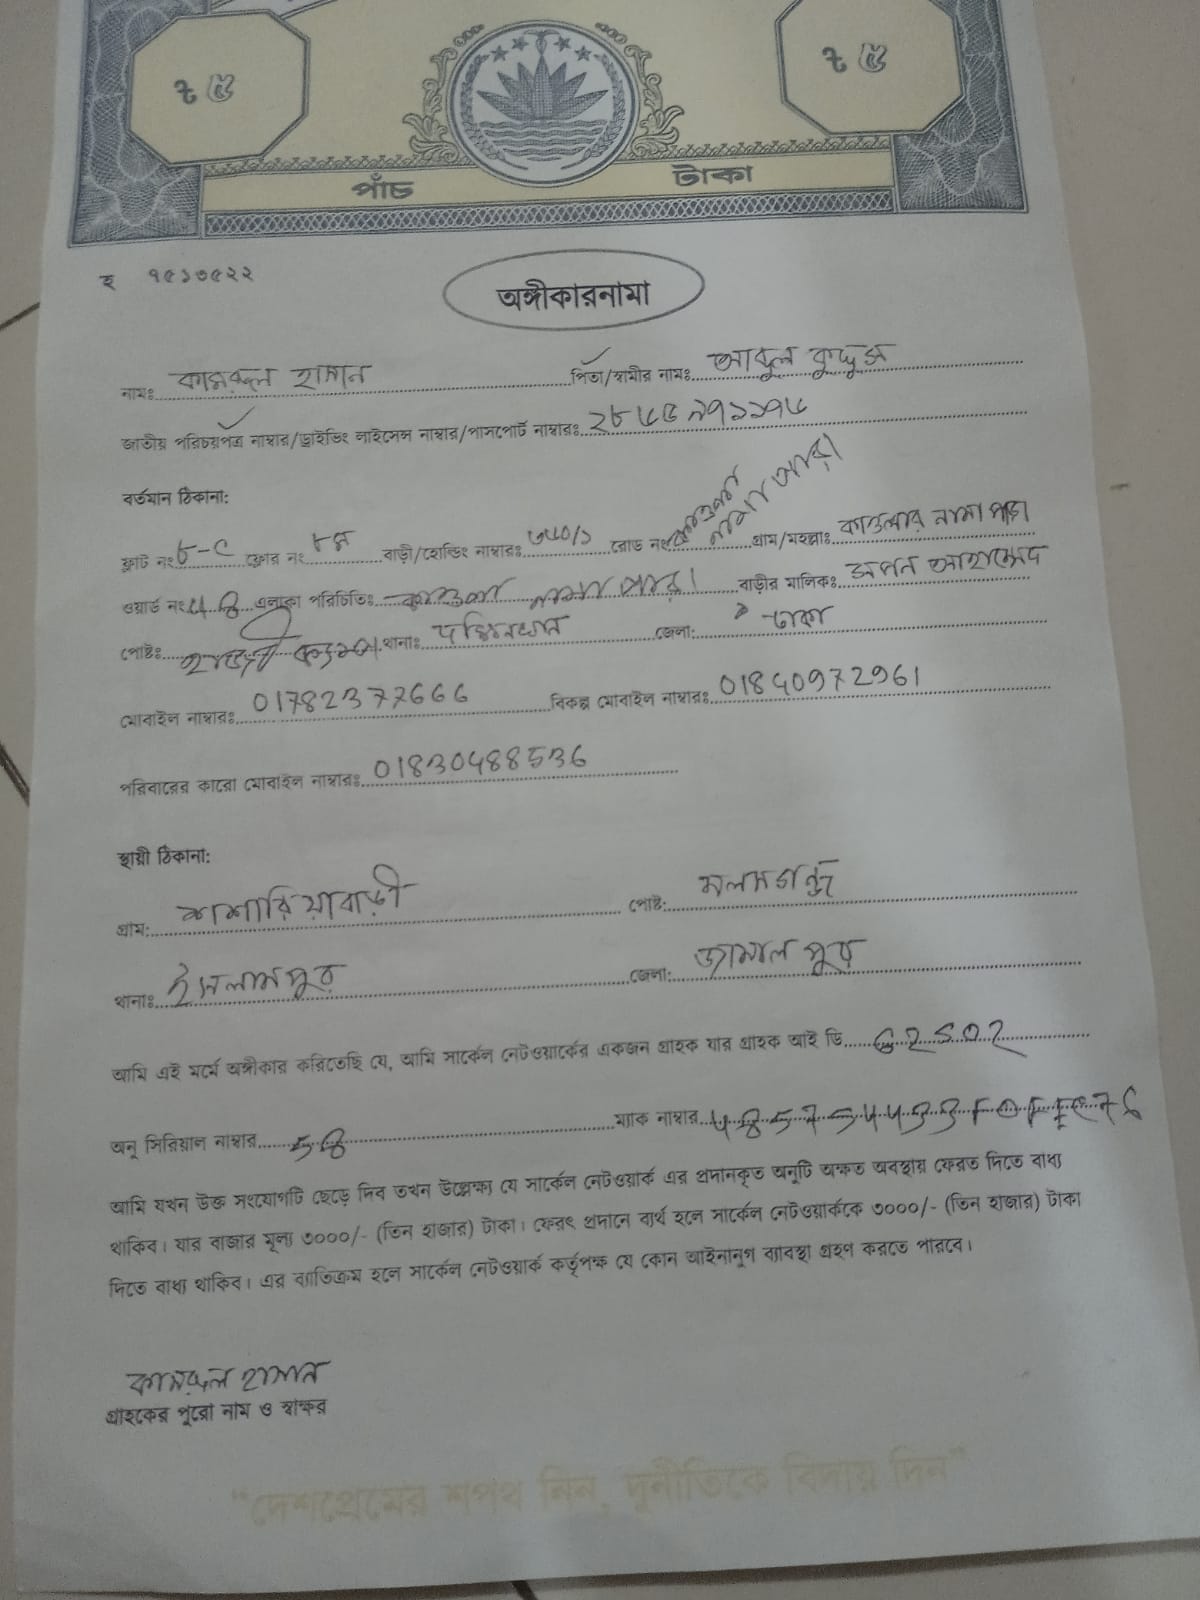 ট ৫ ট ৫
পাঁচ টাকা
হ ৭৫১৩৫২২
অঙ্গীকারনামা
নামঃ কামরুল হাসান পিতা/স্বামীর নামঃ আব্দুল কুদ্দুস
জাতীয় পরিচয়পত্র নাম্বার/ড্রাইভিং লাইসেন্স নাম্বার/পাসপোর্ট নাম্বারঃ
বর্তমান ঠিকানা:
ফ্লাট নংঃ ৮-C ফ্লোর নংঃ ৮ম বাড়ী/হোল্ডিং নাম্বারঃ ৩৬০/১ রোড নংঃ কাওলা নামা পারা গ্রাম/মহল্লাঃ কাওলার নামা পাড়া
ওয়ার্ড নংঃ এলাকা পরিচিতিঃ কাওলা নামা পারা বাড়ীর মালিকঃ আহাম্মেদ
পোষ্টঃ থানাঃ দক্ষিনখান জেলা: ঢাকা
মোবাইল নাম্বারঃ 01782377666 বিকল্প মোবাইল নাম্বারঃ 01840972961
পরিবারের কারো মোবাইল নাম্বারঃ 01830488536
স্থায়ী ঠিকানা:
গ্রাম: কাশারিয়াবাড়ী পোষ্ট: মলমগঞ্জ
থানাঃ ইসলামপুর জেলা: জামালপুর
আমি এই মর্মে অঙ্গীকার করিতেছি যে, আমি সার্কেল নেটওয়ার্কের একজন গ্রাহক যার গ্রাহক আই ডি
অনু সিরিয়াল নাম্বার 58 ম্যাক নাম্বার
আমি যখন উক্ত সংযোগটি ছেড়ে দিব তখন উল্লেক্ষ্য যে সার্কেল নেটওয়ার্ক এর প্রদানকৃত অনুটি অক্ষত অবস্থায় ফেরত দিতে বাধ্য
থাকিব। যার বাজার মূল্য ৩০০০/- (তিন হাজার) টাকা। ফেরৎ প্রদানে ব্যর্থ হলে সার্কেল নেটওয়ার্ককে ৩০০০/- (তিন হাজার) টাকা
দিতে বাধ্য থাকিব। এর ব্যাতিক্রম হলে সার্কেল নেটওয়ার্ক কর্তৃপক্ষ যে কোন আইনানুগ ব্যাবস্থা গ্রহণ করতে পারবে।
কামরুল হাসান
গ্রাহকের পুরো নাম ও স্বাক্ষর
“দেশপ্রেমের শপথ নিন, দুর্নীতিকে বিদায় দিন”